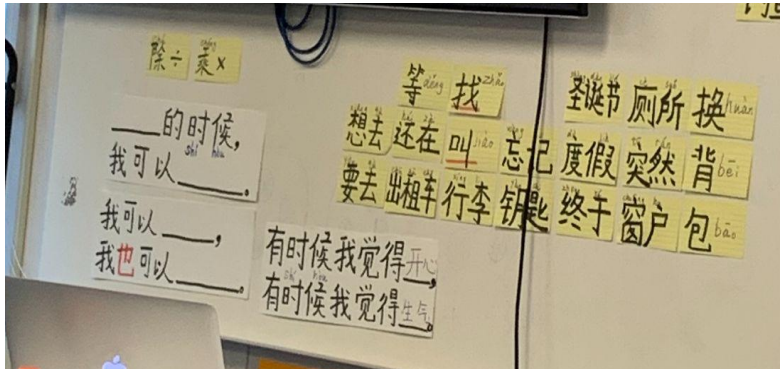 除÷ 乘×
____的时候,
shí hou
我可以____。
我可以____,
我也可以____。
有时候我觉得开心,
shí hou
有时候我觉得生气。
等 děng 找 zhǎo
想去 还在 叫 jiào 忘记
要去 出租车 行李 钥匙
圣诞节 厕所 换 huàn
度假 突然 背 bēi
终于 窗户 包 bāo